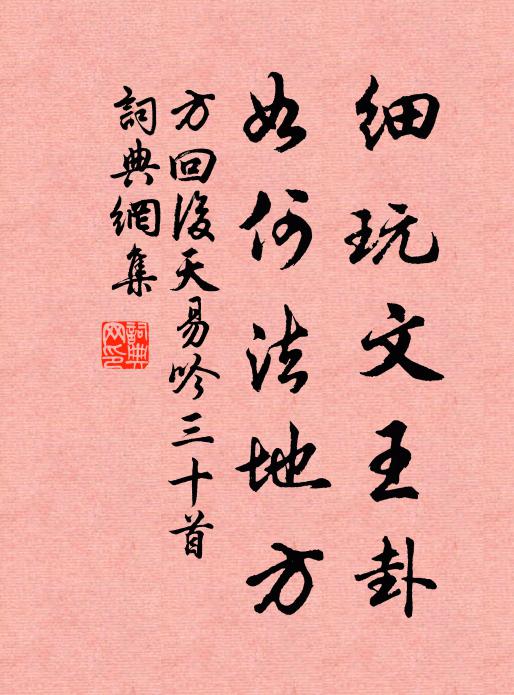 细玩文王卦
如何法地方
方回後天易吟三十首
詞典網集
詞典網印